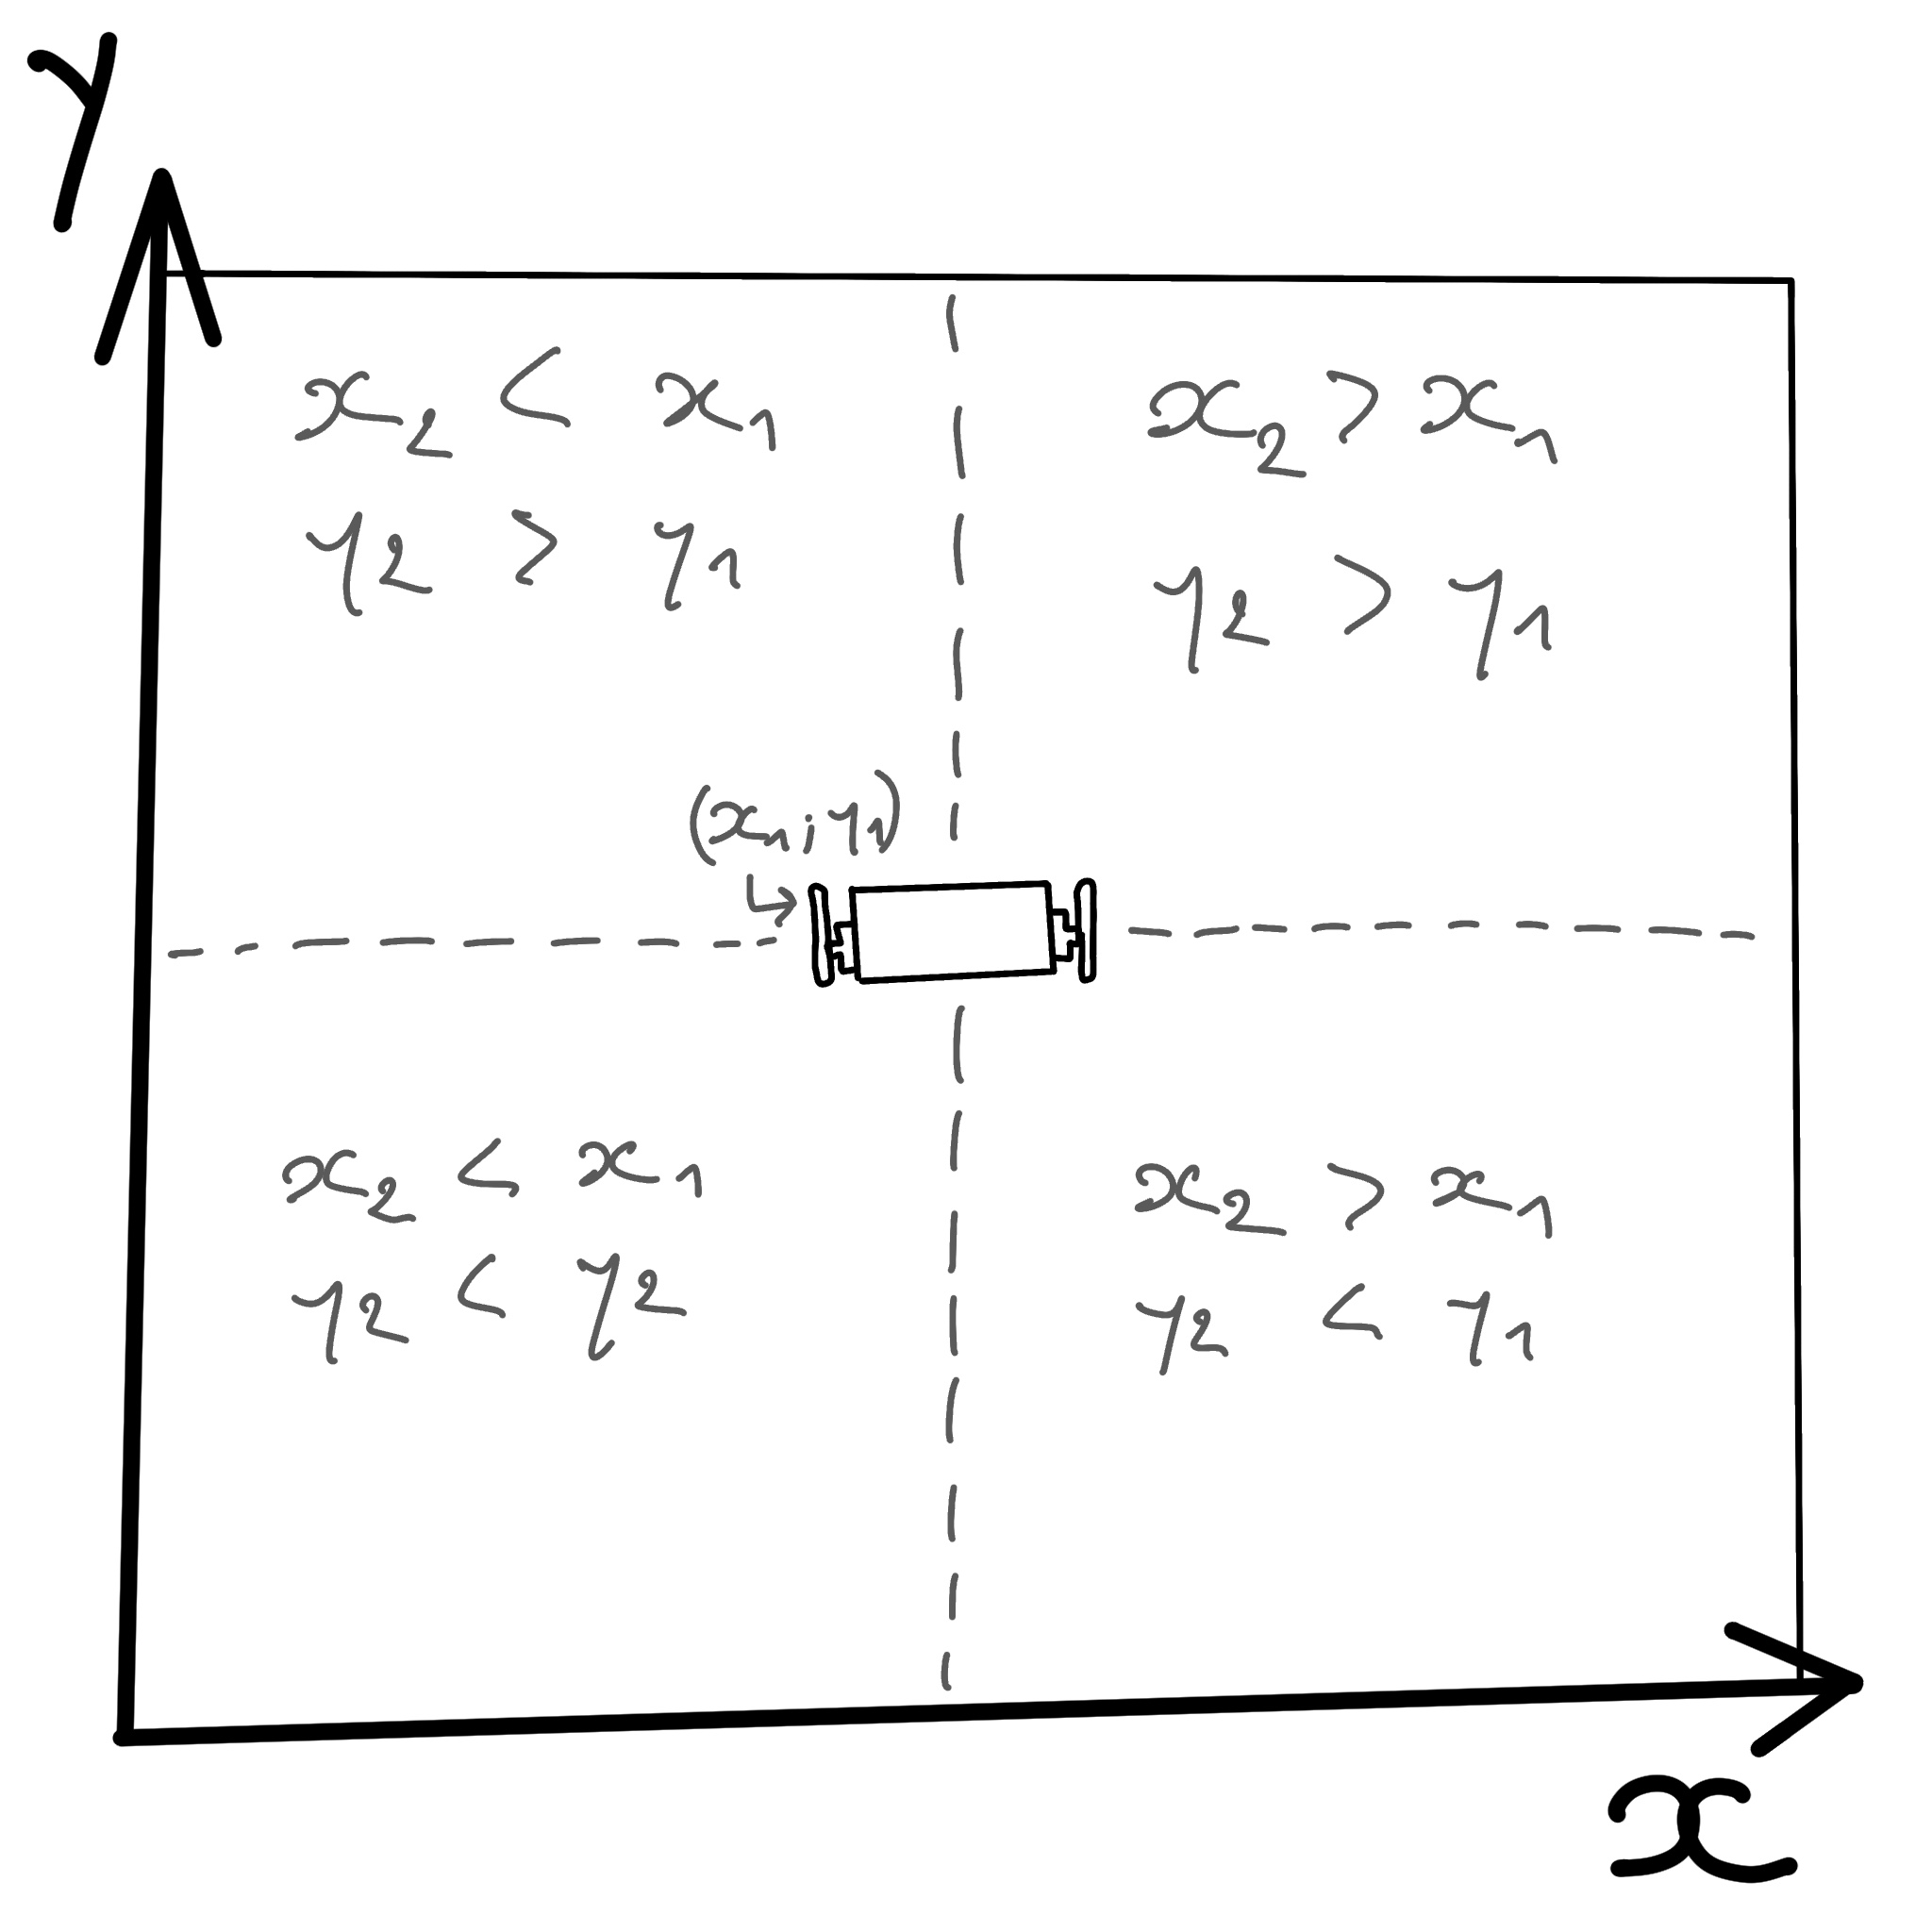 Y
x₂ < x₁
y₂ > y₁
x₂ > x₁
y₂ > y₁
(x₁;y₁)
x₂ < x₁
y₂ < y₂
x₂ > x₁
y₂ < y₁
x